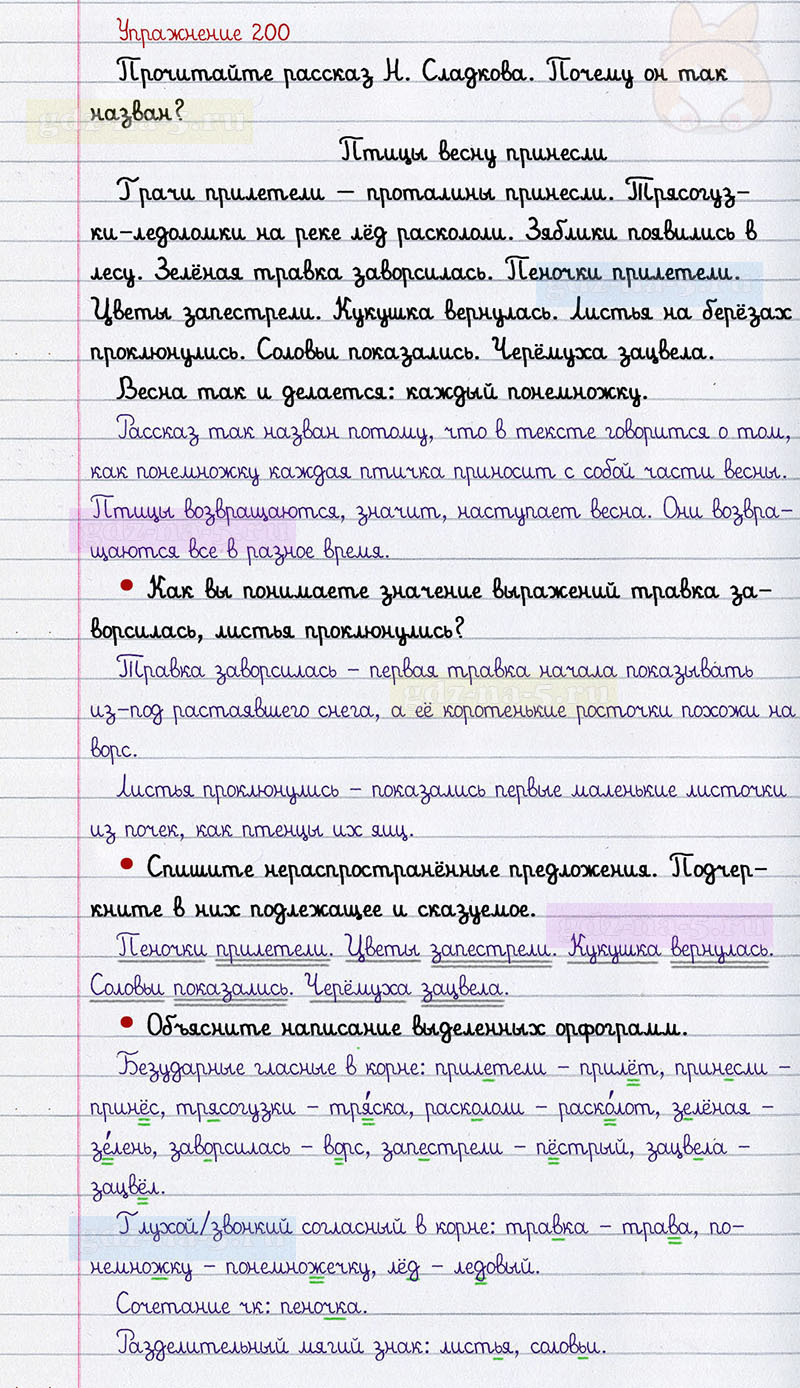 Упражнение 200
Прочитайте рассказ Н. Сладкова. Почему он так
назван?
gdz-na-5.ru
Птицы весну принесли
Грачи прилетели – проталины принесли. Трясогуз-
ки-ледоломки на реке лёд раскололи. Зяблики появились в
лесу. Зелёная травка заворсилась. Пеночки прилетели.
gdz-na-5.ru
Цветы запестрели. Кукушка вернулась. Листья на берёзах
проклюнулись. Соловьи показались. Черёмуха зацвела.
Весна так и делается: каждый понемножку.
Рассказ так назван потому, что в тексте говорится о том,
как понемножку каждая птичка приносит с собой части весны.
Птицы возвращаются, значит, наступает весна. Они возвра-
gdz-na-5.ru
щаются все в разное время.
• Как вы понимаете значение выражений травка за-
ворсилась, листья проклюнулись?
Травка заворсилась – первая травка начала показывать
gdz-na-5.ru
из-под растаявшего снега, а её коротенькие росточки похожи на
ворс.
Листья проклюнулись – показались первые маленькие листочки
из почек, как птенцы их яиц.
• Спишите нераспространённые предложения. Подчер-
кните в них подлежащее и сказуемое.
gdz-na-5.ru
Пеночки прилетели. Цветы запестрели. Кукушка вернулась.
Соловьи показались. Черёмуха зацвела.
• Объясните написание выделенных орфограмм.
Безударные гласные в корне: прилетели – прилёт, принесли –
принёс, трясогузки – тря́ска, раскололи – раско́лот, зелёная –
зе́лень, заворсилась – ворс, запестрели – пёстрый, зацвела –
зацвёл.
Глухой/звонкий согласный в корне: травка – трава, по-
gdz-na-5.ru
немножку – понемножечку, лёд – ледовый.
Сочетание чк: пеночка.
Разделительный мягий знак: листья, соловьи.